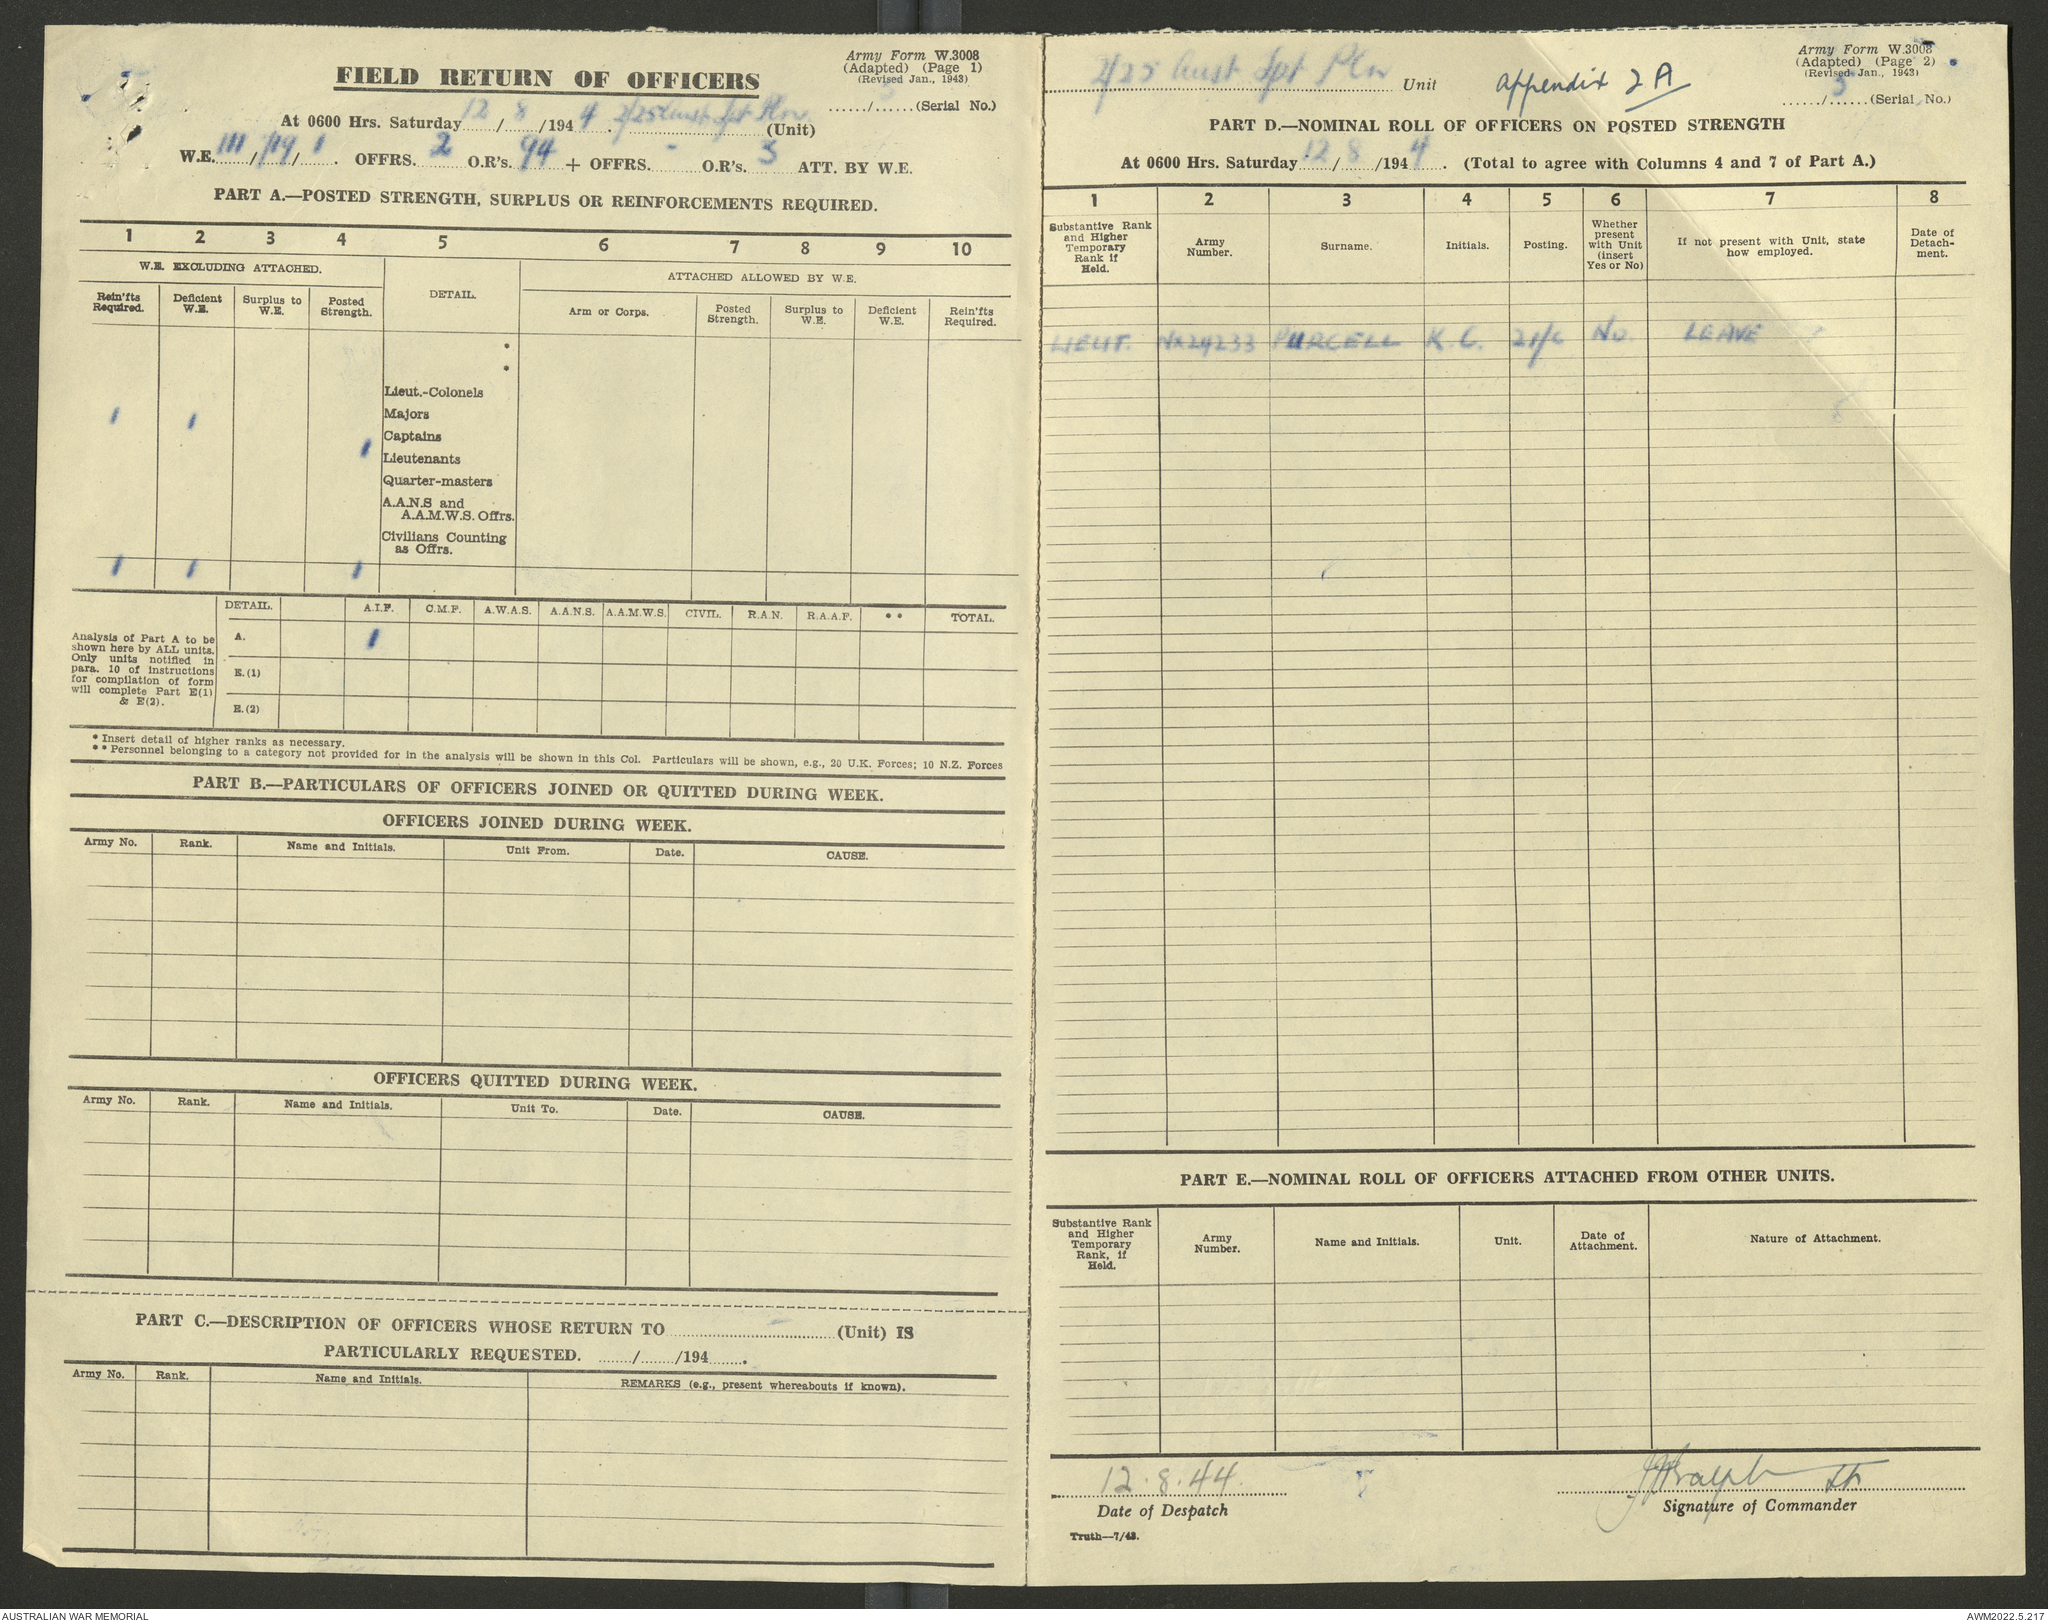 Army Form W.3008
(Adapted) (Page 1)
(Revised Jan., 1943)
FIELD RETURN OF OFFICERS
....../...... (Serial No.)
At 0600 Hrs. Saturday 12/8/1944. 2/25 Aust Spt Pln (Unit)
W.E. 111/719/1. OFFRS. 2 O.R's. 94 + OFFRS. - O.R's. 3 ATT. BY W.E.
PART A.—POSTED STRENGTH, SURPLUS OR REINFORCEMENTS REQUIRED.
1 2 3 4 5 6 7 8 9 10
W.E. EXCLUDING ATTACHED. DETAIL. ATTACHED ALLOWED BY W.E.
Rein'fts Required. Deficient W.E. Surplus to W.E. Posted Strength. Arm or Corps. Posted Strength. Surplus to W.E. Deficient W.E. Rein'fts Required.
*
*
Lieut.-Colonels
1 1 Majors
Captains
1 Lieutenants
Quarter-masters
A.A.N.S and
A.A.M.W.S. Offrs.
Civilians Counting
as Offrs.
1 1 1
DETAIL. A.I.F. C.M.F. A.W.A.S. A.A.N.S. A.A.M.W.S. CIVIL. R.A.N. R.A.A.F. ** TOTAL.
Analysis of Part A to be
shown here by ALL units.
Only units notified in
para. 10 of instructions
for compilation of form
will complete Part E(1)
& E(2).
A. 1
E.(1)
E.(2)
* Insert detail of higher ranks as necessary.
** Personnel belonging to a category not provided for in the analysis will be shown in this Col. Particulars will be shown, e.g., 20 U.K. Forces; 10 N.Z. Forces
PART B.—PARTICULARS OF OFFICERS JOINED OR QUITTED DURING WEEK.
OFFICERS JOINED DURING WEEK.
Army No. Rank. Name and Initials. Unit From. Date. CAUSE.
OFFICERS QUITTED DURING WEEK.
Army No. Rank. Name and Initials. Unit To. Date. CAUSE.
PART C.—DESCRIPTION OF OFFICERS WHOSE RETURN TO ............ (Unit) IS
PARTICULARLY REQUESTED. ....../....../194......
Army No. Rank. Name and Initials. REMARKS (e.g., present whereabouts if known).
Army Form W.3008
(Adapted) (Page 2)
(Revised Jan., 1943)
2/25 Aust Spt Pln Unit appendix 2A
....../5...... (Serial No.)
PART D.—NOMINAL ROLL OF OFFICERS ON POSTED STRENGTH
At 0600 Hrs. Saturday 12/8/1944. (Total to agree with Columns 4 and 7 of Part A.)
1 2 3 4 5 6 7 8
Substantive Rank and Higher Temporary Rank if Held. Army Number. Surname. Initials. Posting. Whether present with Unit (insert Yes or No) If not present with Unit, state how employed. Date of Detach-ment.
LIEUT. NX24233 PURCELL K.C. 2i/c No. LEAVE
PART E.—NOMINAL ROLL OF OFFICERS ATTACHED FROM OTHER UNITS.
Substantive Rank and Higher Temporary Rank, if Held. Army Number. Name and Initials. Unit. Date of Attachment. Nature of Attachment.
12.8.44. Lt.
Date of Despatch Signature of Commander
Truth—7/43.
AUSTRALIAN WAR MEMORIAL AWM2022.5.217